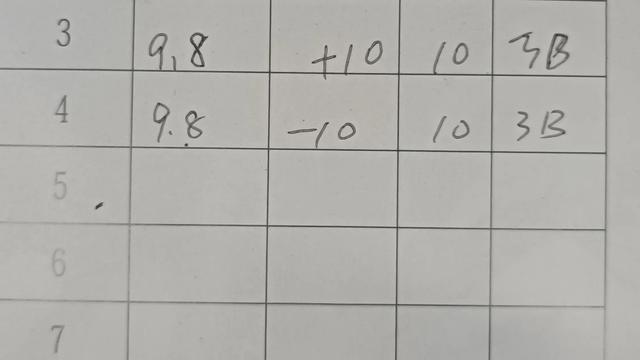 3 9,8 +10 10 3B
4 9.8 -10 10 3B
5
6
7